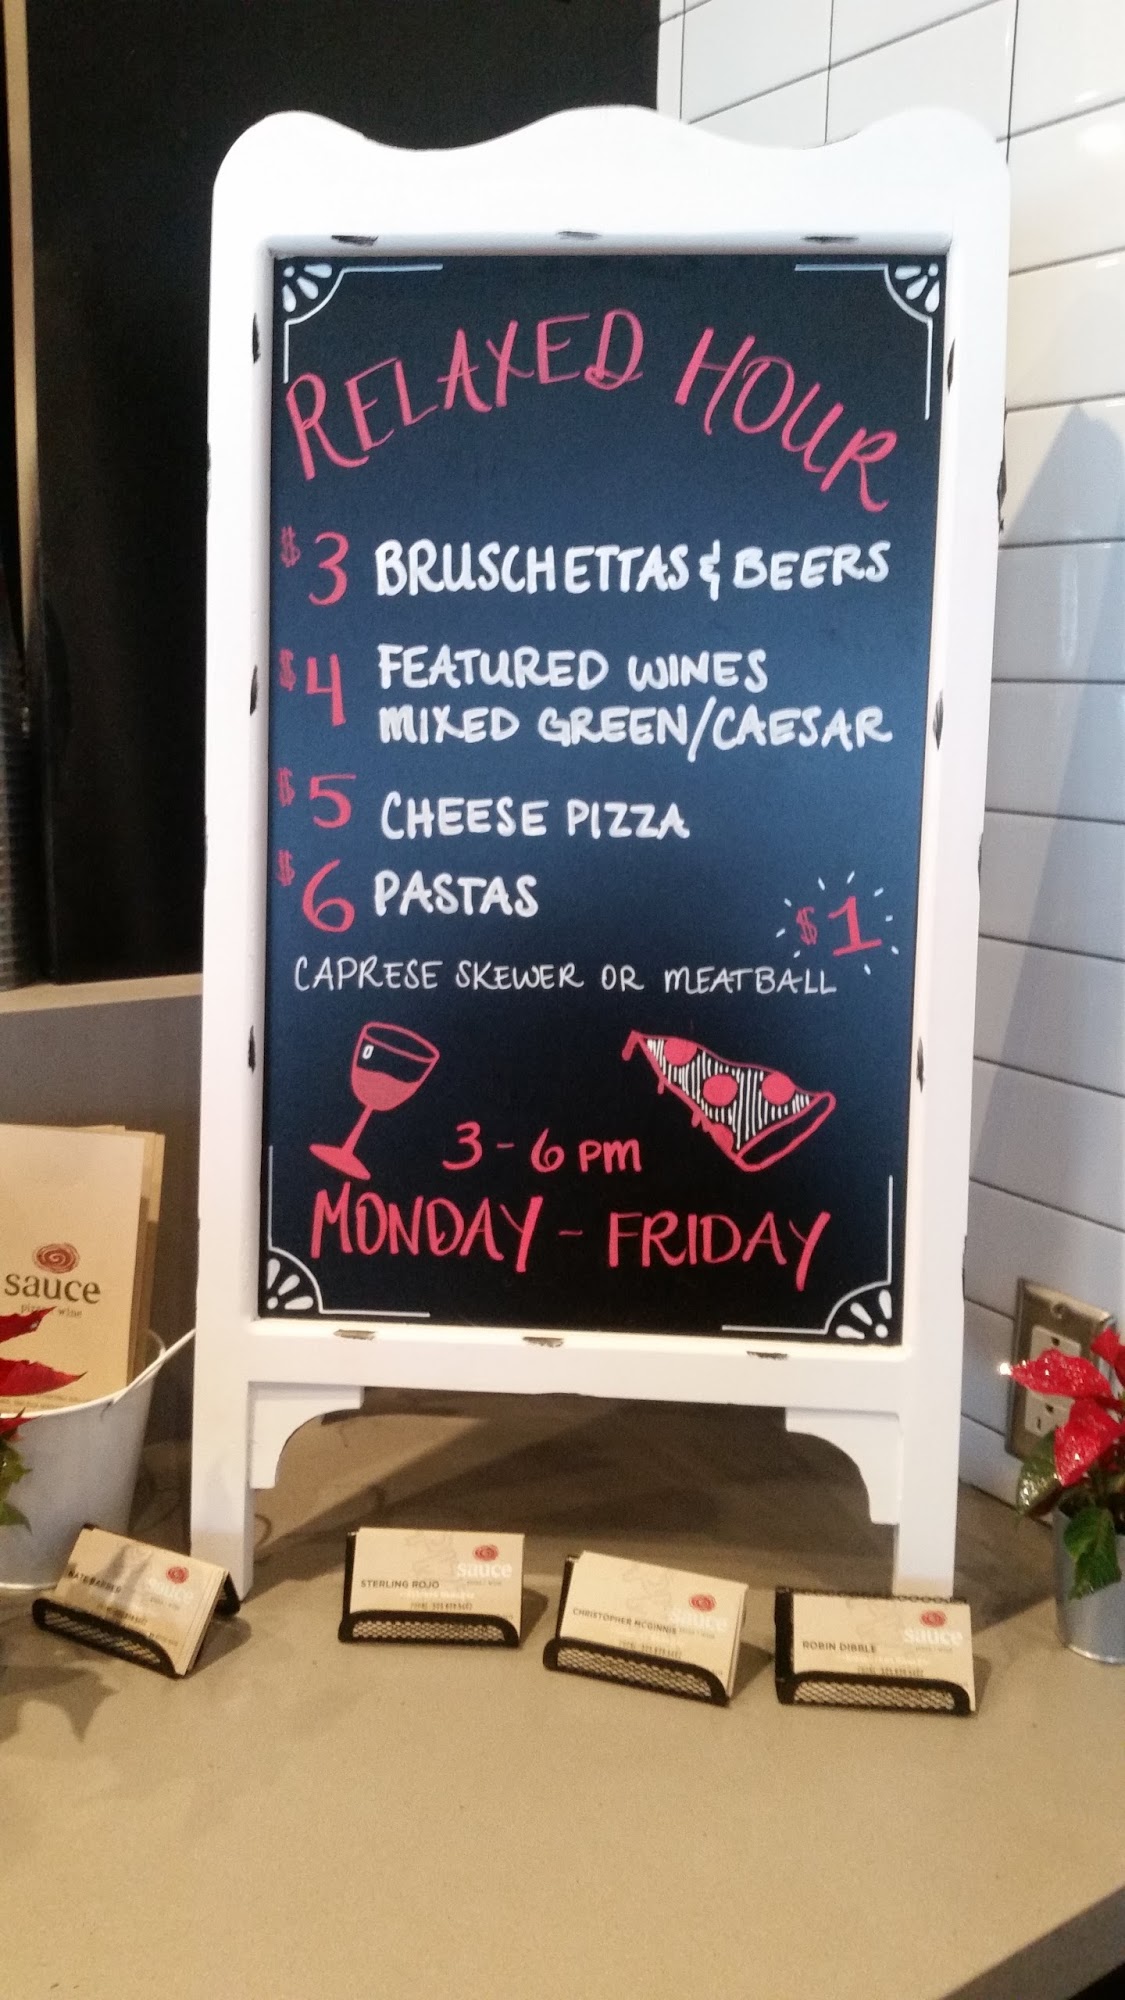 RELAXED HOUR
$3 BRUSCHETTAS & BEERS
$4 FEATURED WINES
MIXED GREEN/CAESAR
$5 CHEESE PIZZA
$6 PASTAS
$1
CAPRESE SKEWER OR MEATBALL
3-6 PM
MONDAY - FRIDAY
sauce
pizza wine
sauce
STERLING ROJO
sauce
CHRISTOPHER MCGINNIS
sauce
ROBIN DIBBLE
sauce